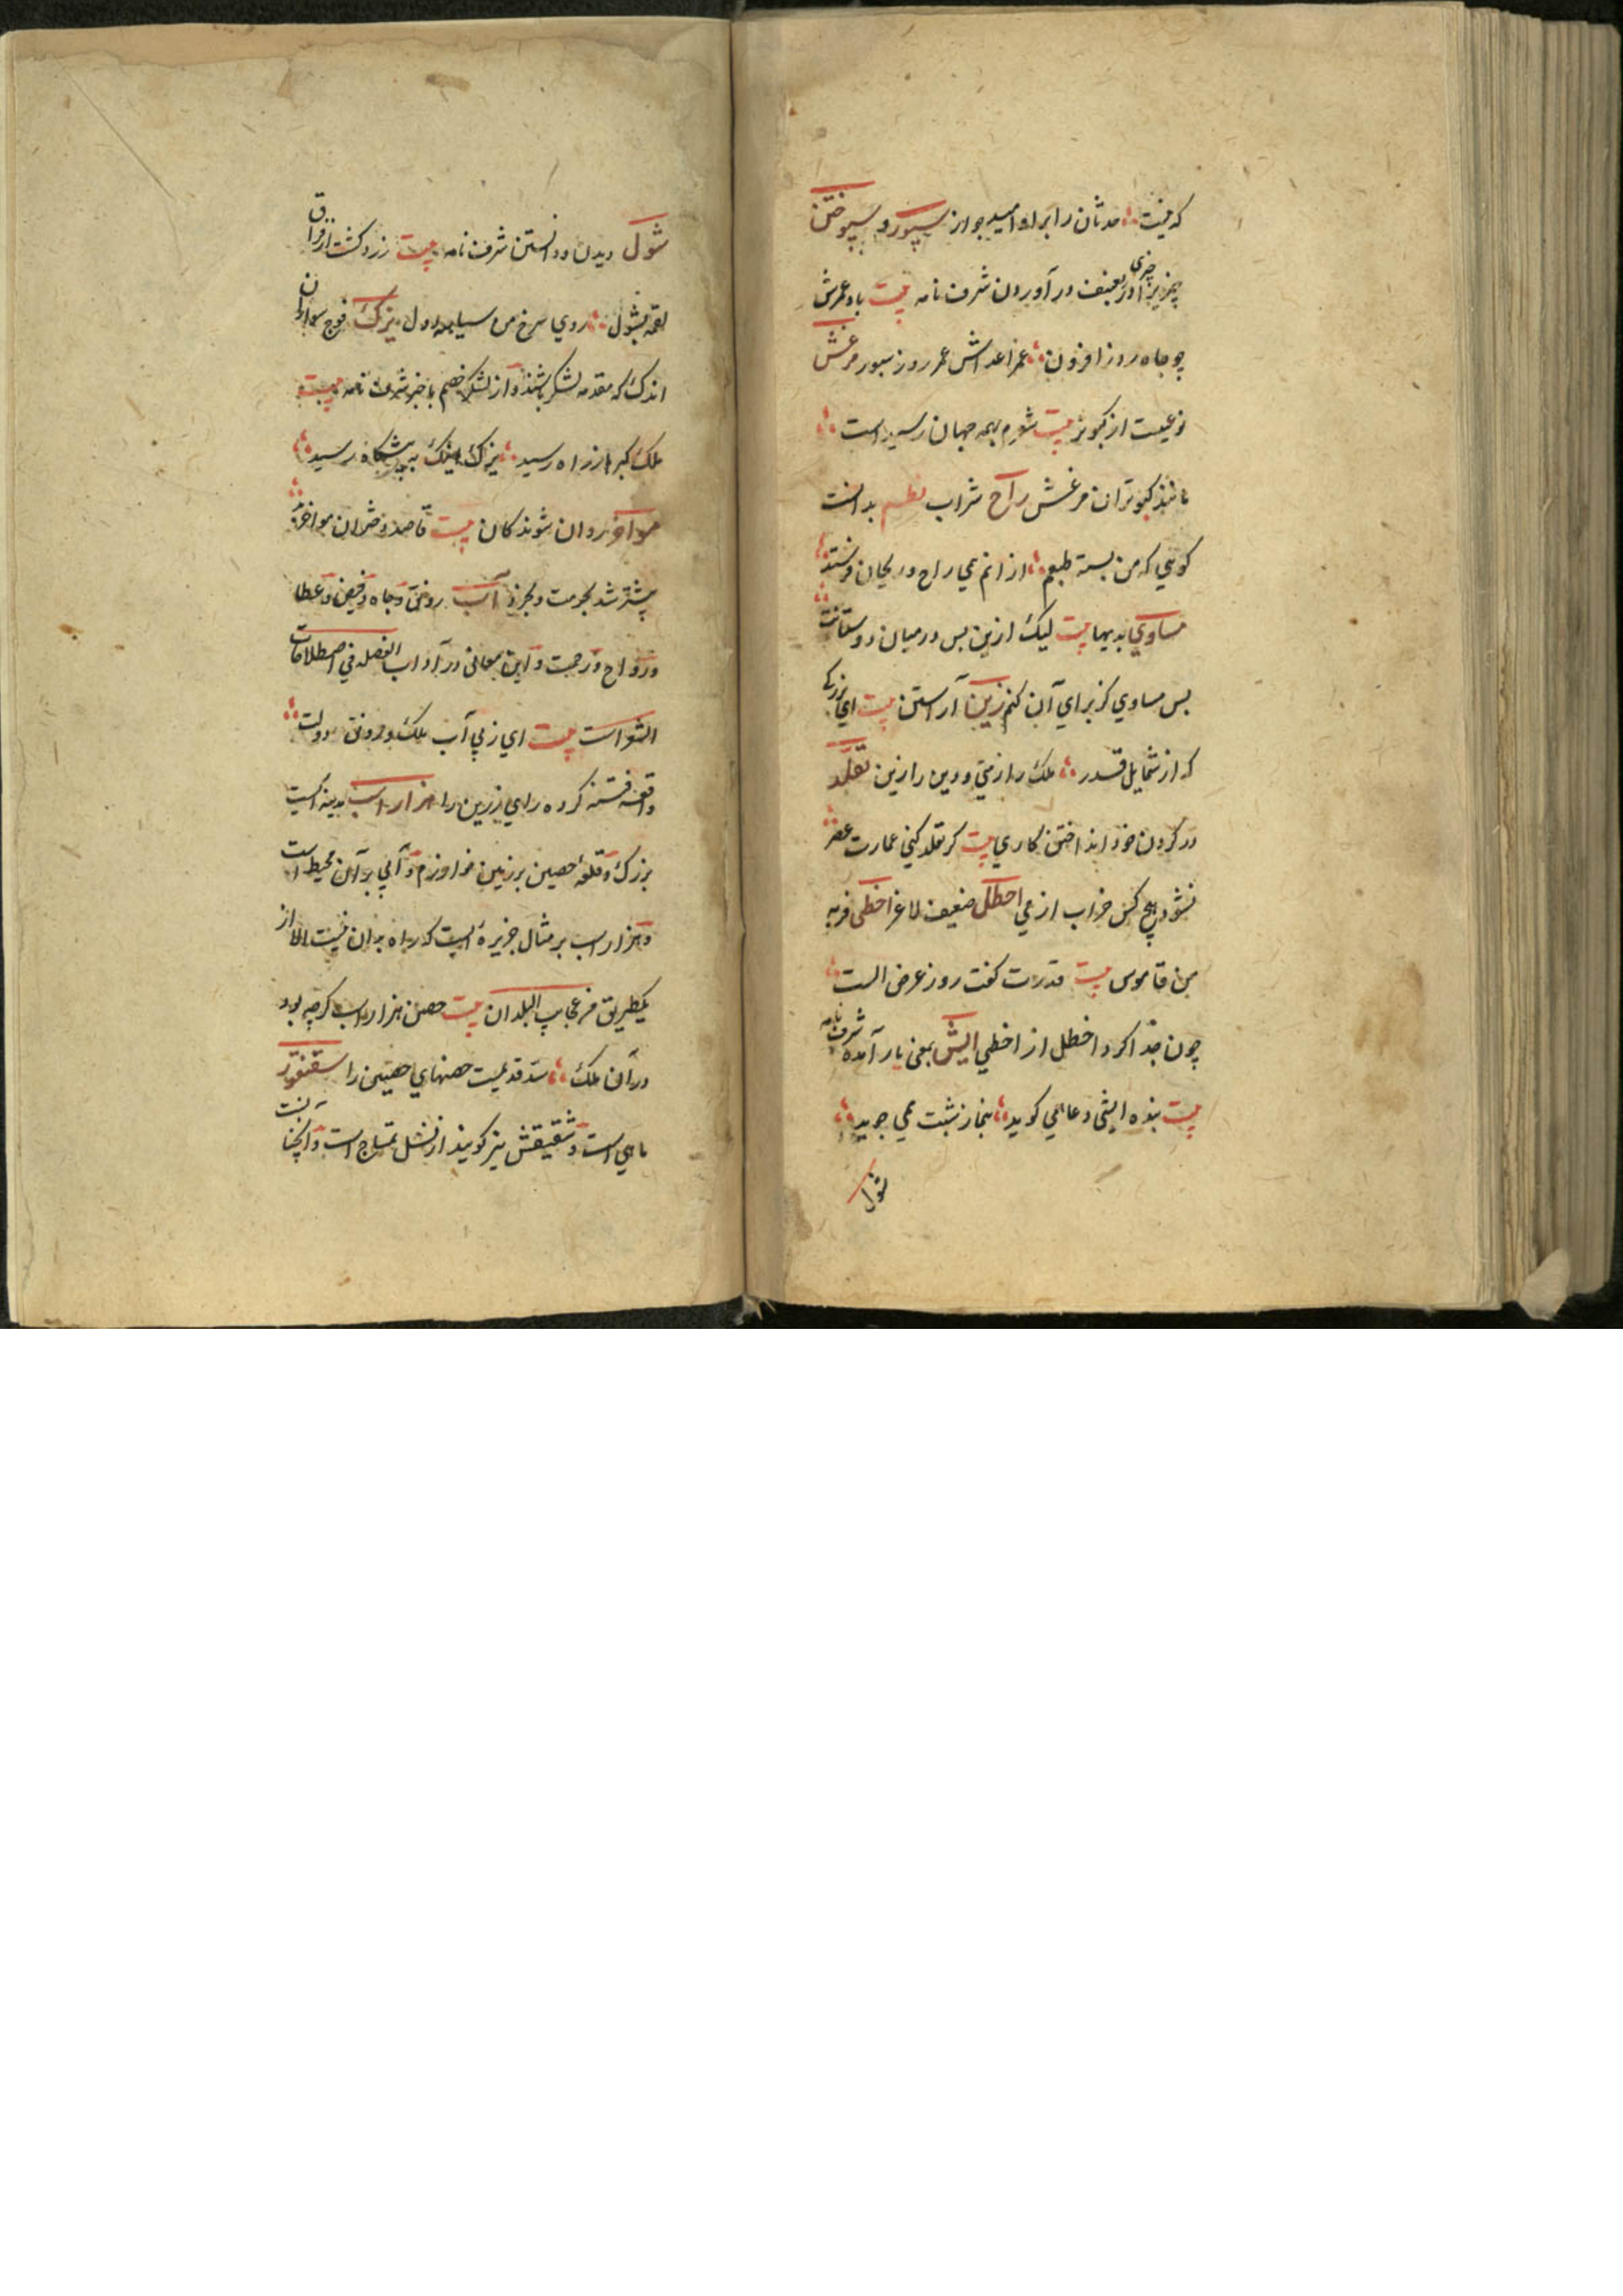 که نیست حدثان را برا و امید جواز سپور و سپوختن
چیز بر چیزی اوژ بعنف در آوردن شرف نامه بیت باد عمرش
چو جاه روز افزون عمر اعداش عمر روز سپور مرغش
نوعیست از کبوتر بیت شورم بهمه جهان رسیداست
مانند کبوتران مرغش راح شراب نظم بدانست
کوهی که من بسته طبعم از انم می راح و ریحان فرستد
مساوی بدیها بیت لیک ازین بس در میان دوستانت
بس مساوی کز برای آن کنم زین آراستن بیت ای بزرکی
که از شمایل قدر ملک را زیتی و دین را زین تقلد
در کردن خود انداختن کاری بیت کر تقلد کنی عمارت عصر
نشود هیچ کس خراب از می اخطل ضعیف لاغر اخطی فربه
من قاموس بیت قدرت کفت روز عرض الست
چون جدا کرد اخطل از اخطی ایش بمعنی یار آمده شرف نامه
بیت بنده ایشی دعا می کوید بنجاز شبت می جوید
شول دیدن و دانستن شرف نامه بیت زرد کشت از فراق
لقمه بشول روی سرخ من سیاه دل یزک فوج سواران
اندک که مقدمه لشکر باشند و از لشکر خصم با خبر شرف نامه بیت
ملک کبر از راه رسید یزک اینک به پیشکاه رسید
روان شوندکان بیت قاصد
بیشتر شد بحرمت و بخرد آب رونق و جاه و فیض و عطا
و رواج و رحمت و این معانی در آداب الفضلا فی اصطلاحات
الشعراست بیت ای ز پی آب ملک و رونق دولت
واقعه فتنه کرده رای زرین را هزار اسب مدینه است
بزرک و قلعه حصین برزمین خوارزم و آبی بر آن محیط است
و هزار اسب بر مثال جزیره است که راه بدان نیست الا از
یکطریق من عجایب البلدان بیت حصن هزار اسب کرچه بود
در آن ملک سد قدیمست حصنهای حصین را سقنقور
ماهی است و شقیقش نیز کویند از نسل تمساح است و آنچنانست